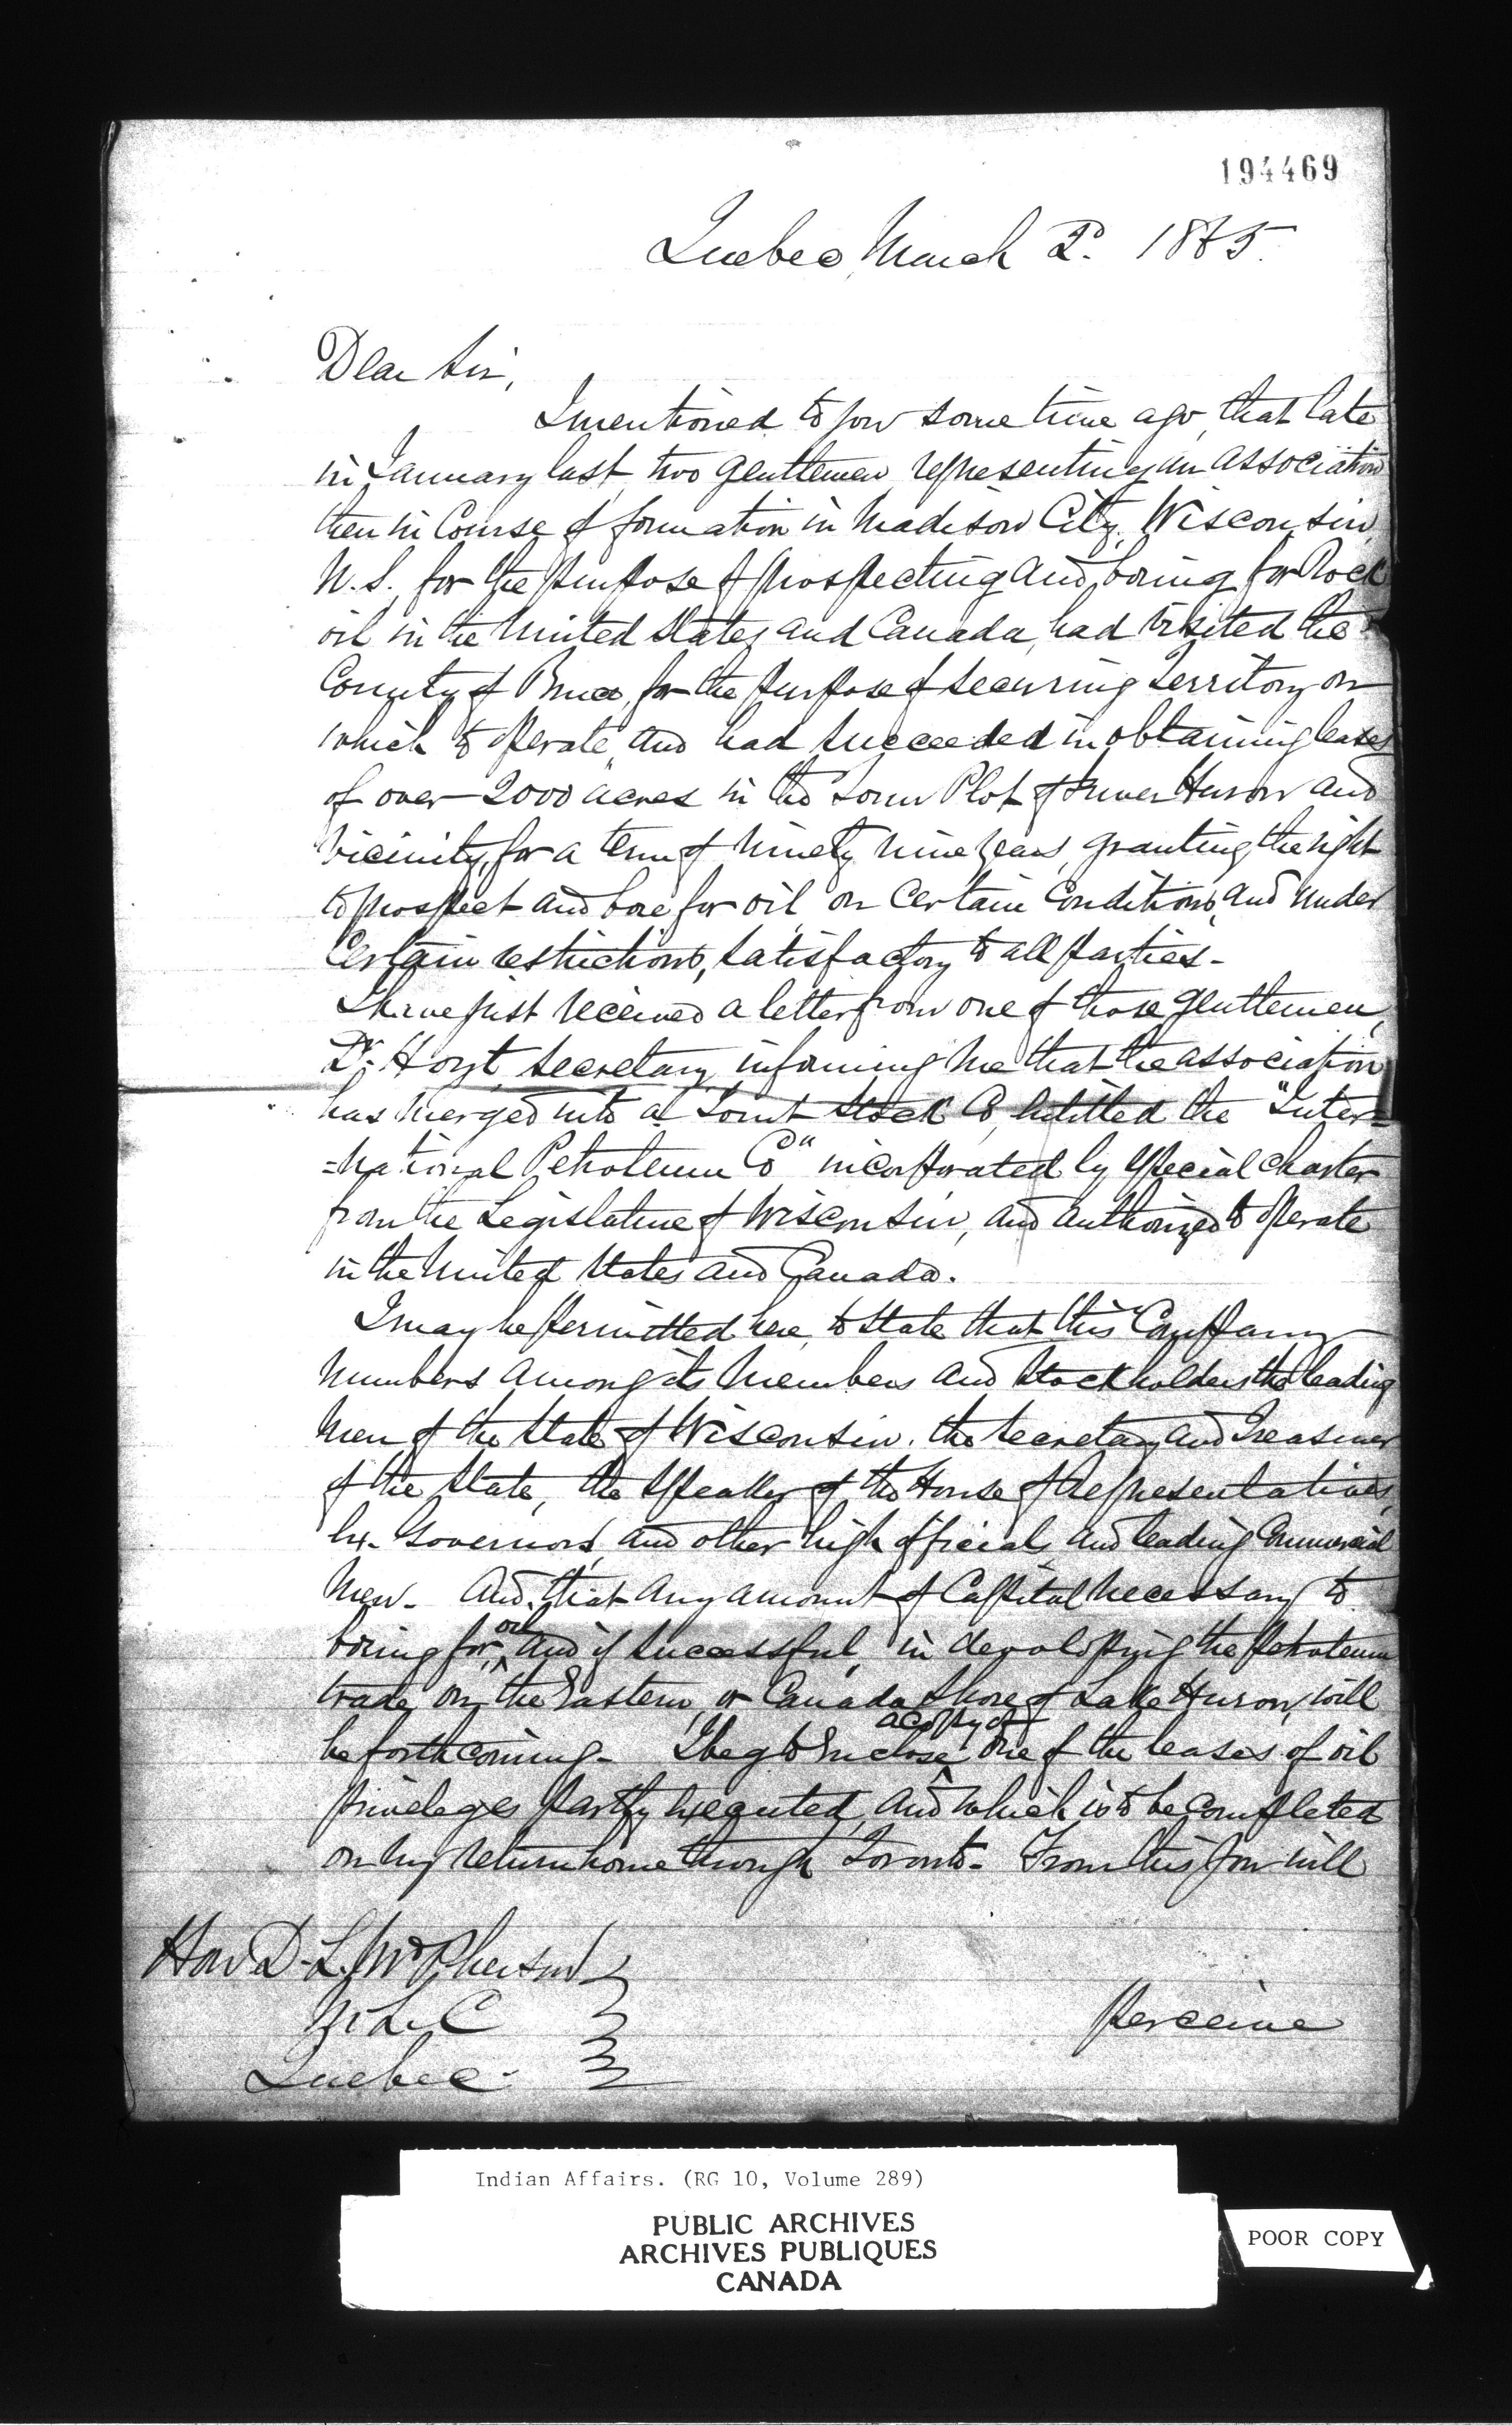 194469
Quebec, March 2d. 1865.
Dear Sir,
I mentioned to you some time ago, that late
in January last, two gentlemen, representing an association
then in Course of formation in Madison City, Wisconsin,
U.S. for the purpose of prospecting and boring for Rock
oil in the United States and Canada, had visited the
County of Bruce, for the purpose of securing territory on
which to operate, and had succeeded in obtaining leases
of over 2000 acres in the Town Plot of Inverhuron and
vicinity, for a term of ninety nine years, granting the right
to prospect and bore for oil on certain conditions, and under
certain restrictions, satisfactory to all parties -
I have just received a letter from one of those gentlemen,
Dr. Hoyt, Secretary, informing me that the association
has merged into a Joint Stock Co, entitled the "Inter=
=national Petroleum Co" incorporated by special charter
from the Legislature of Wisconsin, and authorized to operate
in the United States and Canada.
I may be permitted here, to state that this Company
numbers among its members and stockholders the leading
men of the State of Wisconsin. the Secretary and Treasurer
of the State, the Speaker of the House of Representatives,
Ex-Governors, and other high officials and leading commercial
men - And that any amount of Capital necessary to
boring for oil, and if successful, in developing the petroleum
trade on the Eastern, or Canada Shore of Lake Huron, will
be forthcoming - I beg to enclose a copy of one of the leases of oil
privileges partly executed, and which is to be completed
on my return home through Toronto - From this you will
Hon D. L. McPherson
M.L.C
Quebec -
perceive
Indian Affairs. (RG 10, Volume 289)
PUBLIC ARCHIVES
ARCHIVES PUBLIQUES
CANADA
POOR COPY